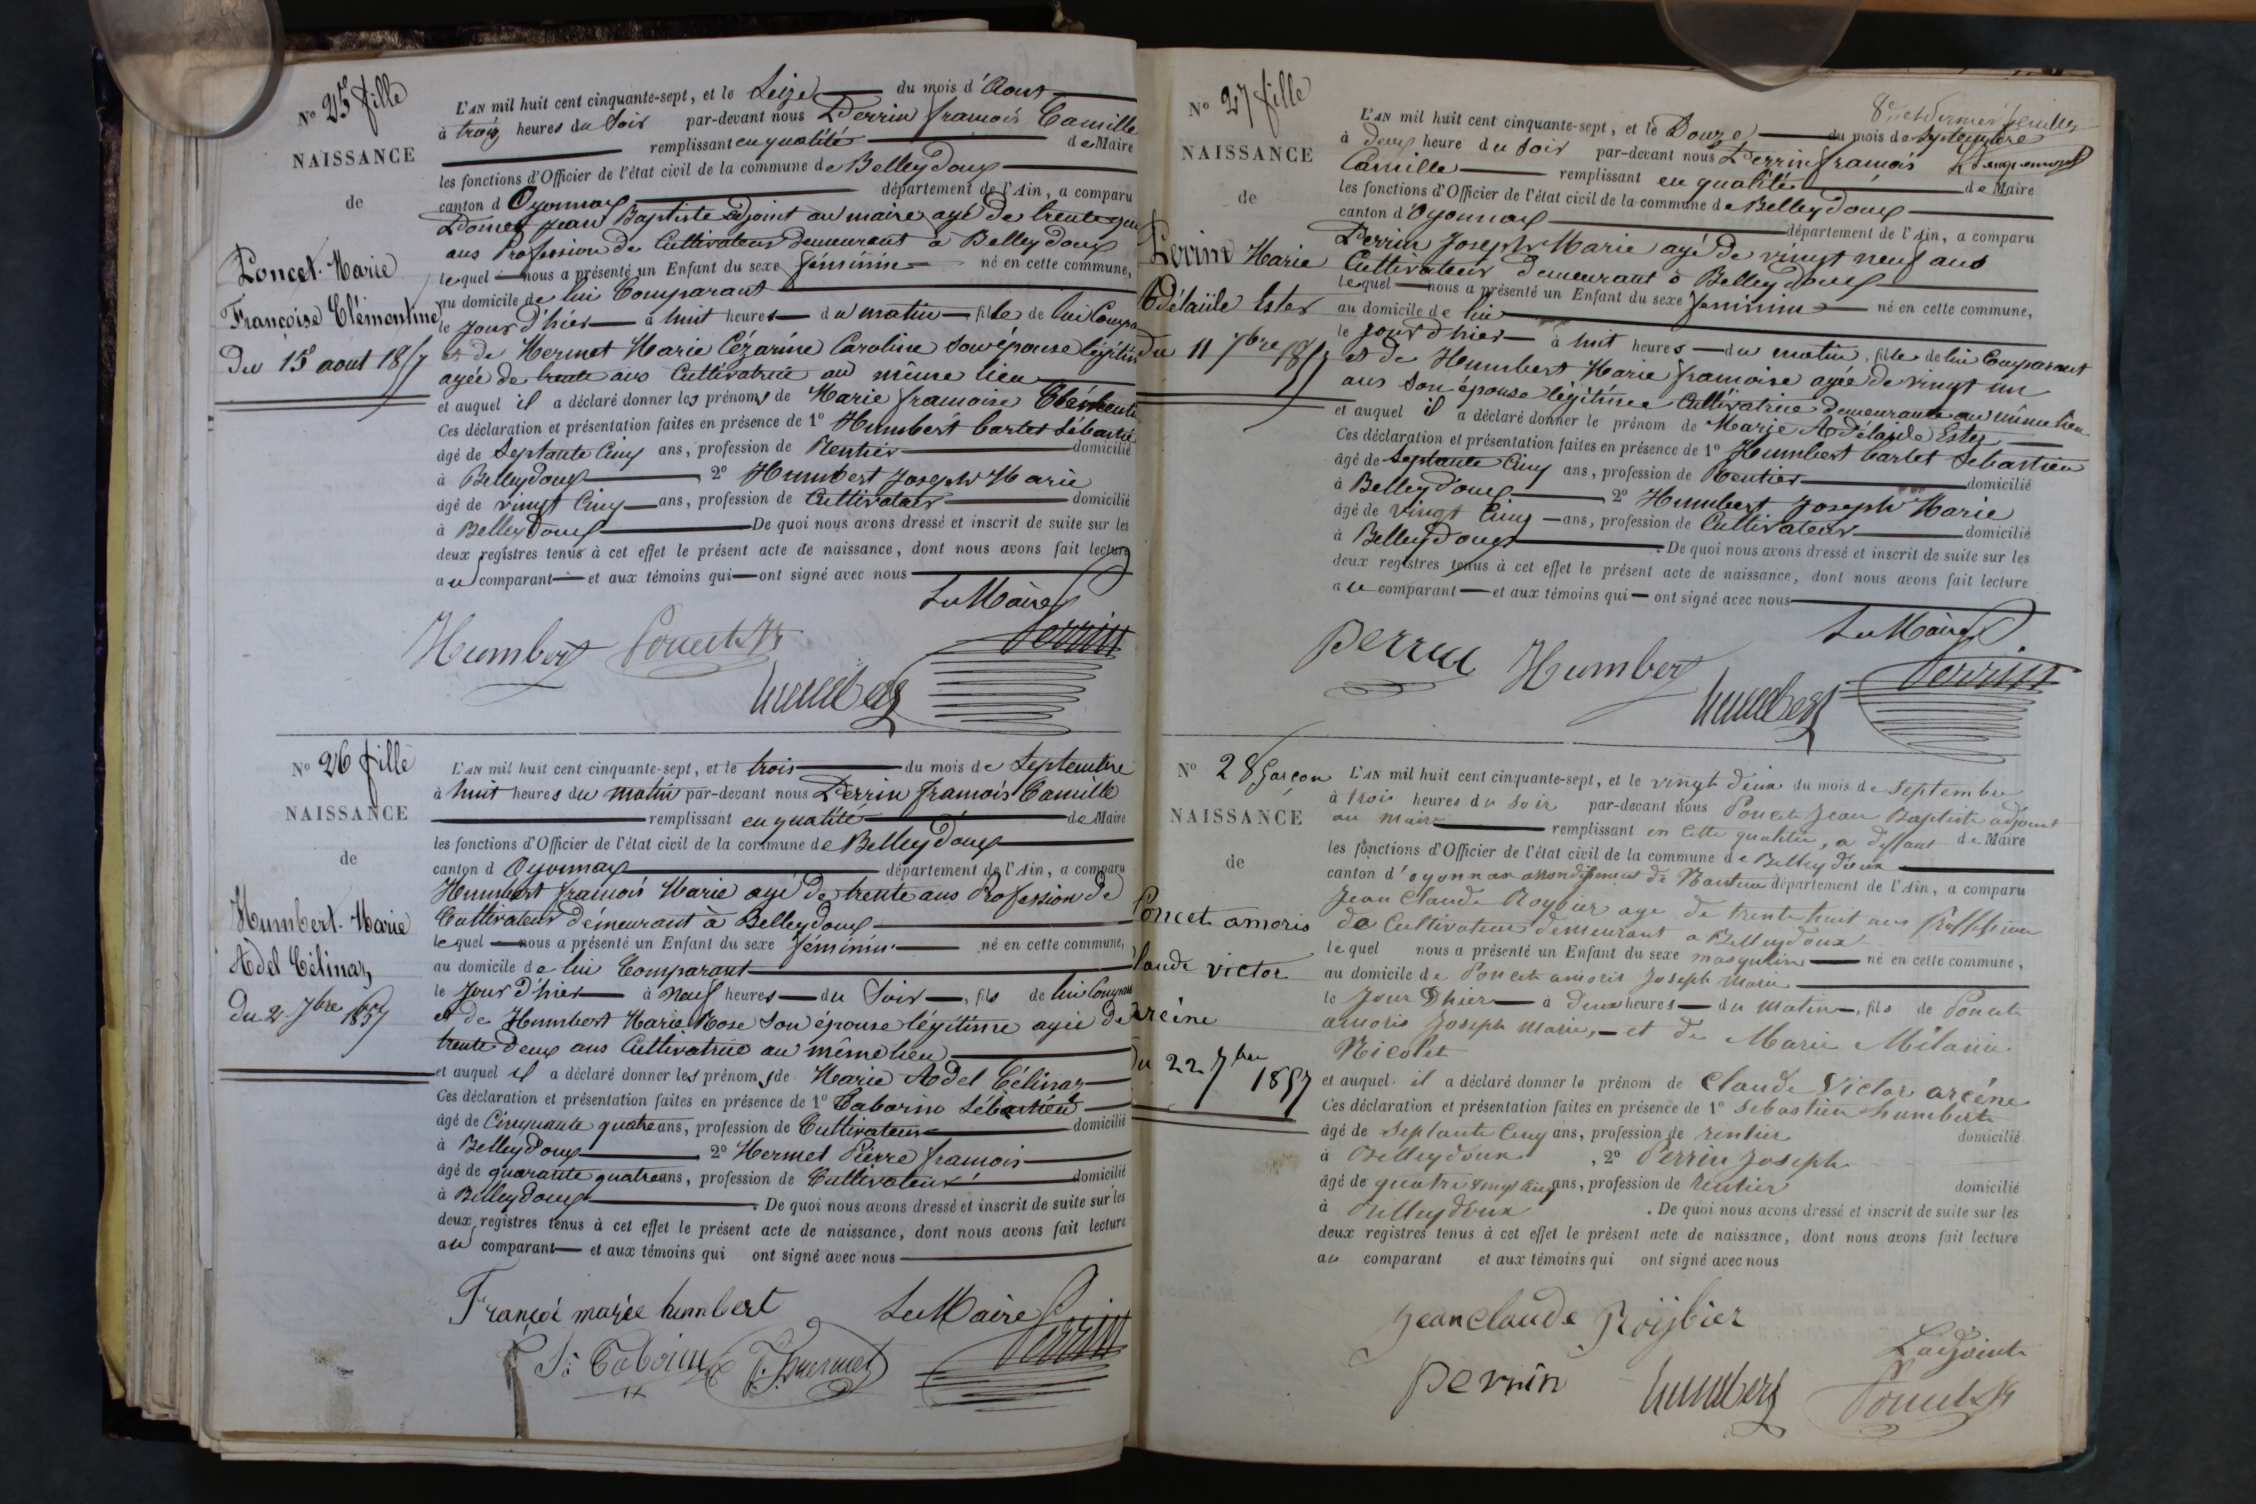 N° 25 fille
NAISSANCE
de
Poncet Marie
Françoise Clémentine
Du 15 aout 1857
L'AN mil huit cent cinquante-sept, et le Seize du mois d'Aout
à trois heures du Soir par-devant nous Perrin framois Camille
remplissant en qualité de Maire
les fonctions d'Officier de l'état civil de la commune de Belleydoux
canton d Oyonnax département de l'Ain, a comparu
Poncet Jean Baptiste adjoint au maire agé de trente
ans Profession de Cultivateur demeurant à Belleydoux
lequel nous a présenté un Enfant du sexe féminin né en cette commune,
au domicile de lui Comparant
le Jour d'hier à huit heures du matin fille de lui Compa
et de Hermet Marie Cézarine Caroline Son épouse légitim
agée de trente ans Cultivatrice au même lieu
et auquel il a déclaré donner les prénoms de Marie framoise Clémenti
Ces déclaration et présentation faites en présence de 1° Humbert Carlet Sébastie
âgé de Septante Cinq ans, profession de Rentier domicilié
à Belleydoux 2° Humbert Joseph Marie
âgé de vingt Cinq ans, profession de Cultivateur domicilié
à Belleydoux De quoi nous avons dressé et inscrit de suite sur les
deux registres tenus à cet effet le présent acte de naissance, dont nous avons fait lecture
au comparant et aux témoins qui ont signé avec nous
Le Maire
Humbert Poncet Perrin
humbert
N° 26 fille
NAISSANCE
de
Humbert Marie
Adel Célinaz
Du 2 7bre 1857
L'AN mil huit cent cinquante-sept, et le trois du mois de Septembre
à huit heures du matin par-devant nous Perrin framois Camille
remplissant en qualité de Maire
les fonctions d'Officier de l'état civil de la commune de Belleydoux
canton d Oyonnax département de l'Ain, a comparu
Humbert framois Marie agé de trente ans Profession de
Cultivateur demeurant à Belleydoux
lequel nous a présenté un Enfant du sexe féminin né en cette commune,
au domicile de lui Comparant
le Jour d'hier à neuf heures du Soir, fils de lui Compara
et de Humbert Marie Rose Son épouse légitime agée de
trente deux ans Cultivatrice au même lieu
et auquel il a déclaré donner les prénoms de Marie Adel Célinaz
Ces déclaration et présentation faites en présence de 1° Taborin Sébastien
âgé de Cinquante quatre ans, profession de Cultivateur domicilié
à Belleydoux 2° Hermet Pierre framois
âgé de quarante quatre ans, profession de Cultivateur domicilié
à Belleydoux. De quoi nous avons dressé et inscrit de suite sur les
deux registres tenus à cet effet le présent acte de naissance, dont nous avons fait lecture
au comparant et aux témoins qui ont signé avec nous
Françoi marie humbert Le Maire
Perrin
St Taborin
N° 27 fille
NAISSANCE
de
Perrin Marie
Adélaïde Ester
du 11 7bre 1857
8e et dernier feuillet
L'AN mil huit cent cinquante-sept, et le Douze du mois de Septembre
à deux heure du Soir par-devant nous Perrin framois
Camille remplissant en qualité de Maire
les fonctions d'Officier de l'état civil de la commune de Belleydoux
canton d'Oyonnax département de l'Ain, a comparu
Perrin Joseph Marie agé de vingt neuf ans
Cultivateur demeurant à Belleydoux
lequel nous a présenté un Enfant du sexe féminin né en cette commune,
au domicile de lui
le jour d'hier à huit heures du matin, fille de lui Comparant
et de Humbert Marie framoise agée de vingt un
ans Son épouse légitime Cultivatrice demeurante au même lieu
et auquel il a déclaré donner le prénom de Marie Adélaïde Ester
Ces déclaration et présentation faites en présence de 1° Humbert Carlet Sebastien
âgé de Septante Cinq ans, profession de Rentier domicilié
à Belleydoux 2° Humbert Joseph Marie
âgé de vingt Cinq ans, profession de Cultivateur domicilié
à Belleydoux. De quoi nous avons dressé et inscrit de suite sur les
deux registres tenus à cet effet le présent acte de naissance, dont nous avons fait lecture
au comparant et aux témoins qui ont signé avec nous
Le Maire
perrin Humbert Perrin
humbert
N° 28 Garçon
NAISSANCE
de
Poncet amoris
Claude victor
arcéne
du 22 7bre
1857
L'AN mil huit cent cinquante-sept, et le vingt deux du mois de septembre
à trois heures du soir par-devant nous Poncet Jean Baptiste adjoint
au maire remplissant en cette qualitée, a deffaut de Maire
les fonctions d'Officier de l'état civil de la commune de Belleydoux
canton d'oyonnax arrondissement de Nantua département de l'Ain, a comparu
Jean Claude Roybier age de trente huit ans Proffession
de Cultivateur demeurant a Belleydoux
lequel nous a présenté un Enfant du sexe masqulin né en cette commune,
au domicile de Poncet amoris Joseph Marie
le Jour Dhier à deux heures du matin, fils de Poncet
amoris Joseph Marie, et de Marie Mélanie
Nicolet
et auquel il a déclaré donner le prénom de Claude Victor arcéne
Ces déclaration et présentation faites en présence de 1° sebastien humbert
âgé de septante Cinq ans, profession de rentier domicilié
à Belleydoux, 2° Perrin Joseph
âgé de quatre vingt ans, profession de Rentier domicilié
à Belleydoux. De quoi nous avons dressé et inscrit de suite sur les
deux registres tenus à cet effet le présent acte de naissance, dont nous avons fait lecture
au comparant et aux témoins qui ont signé avec nous
jean claude Roÿbier
L'adjoint
perrin humbert Poncet